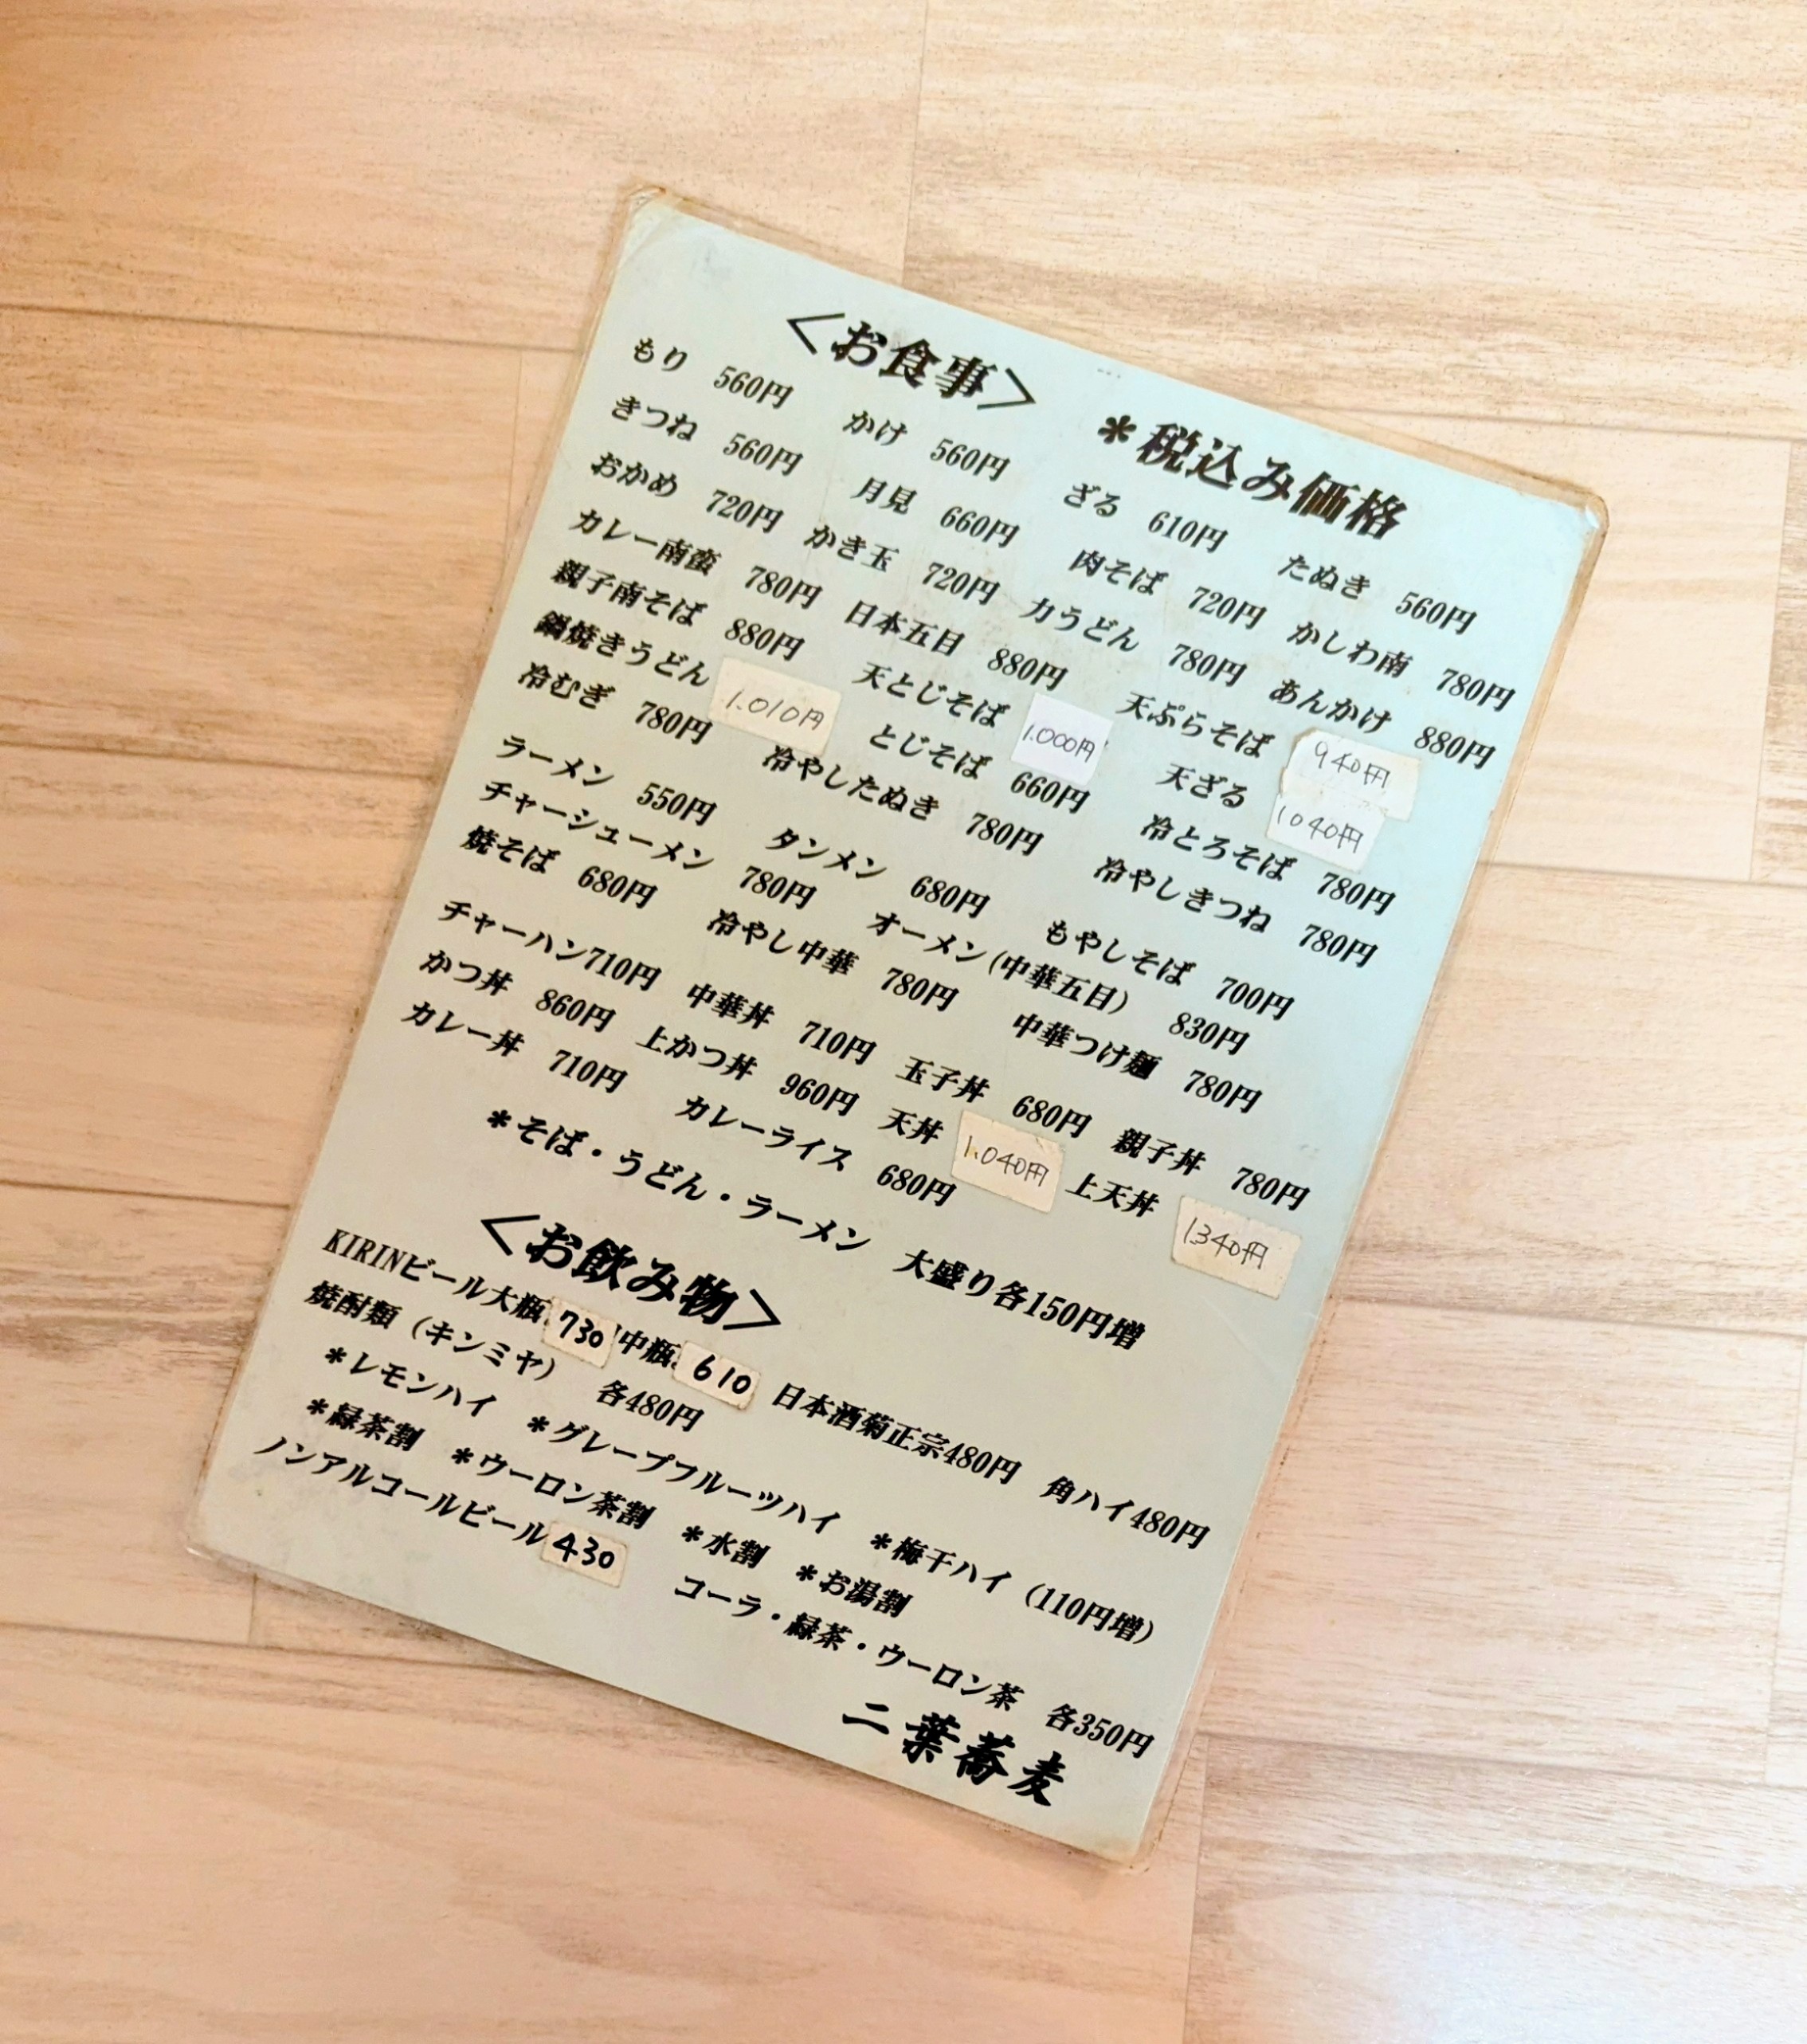 <お食事> *税込み価格
もり 560円 かけ 560円 ざる 610円 たぬき 560円
きつね 560円 月見 660円 肉そば 720円 かしわ南 780円
おかめ 720円 かき玉 720円 力うどん 780円 あんかけ 880円
カレー南蛮 780円 日本五目 880円 天ぷらそば 940円
親子南そば 880円 天とじそば 1.000円 天ざる 1040円
鍋焼きうどん 1.010円 とじそば 660円 冷とろそば 780円
冷むぎ 780円 冷やしたぬき 780円 冷やしきつね 780円
ラーメン 550円 タンメン 680円 もやしそば 700円
チャーシューメン 780円 オーメン(中華五目) 830円
焼そば 680円 冷やし中華 780円 中華つけ麺 780円
チャーハン710円 中華丼 710円 玉子丼 680円 親子丼 780円
かつ丼 860円 上かつ丼 960円 天丼 1.040円 上天丼 1.340円
カレー丼 710円 カレーライス 680円
*そば・うどん・ラーメン 大盛り各150円増
<お飲み物>
KIRINビール大瓶 730 中瓶 610 日本酒菊正宗480円 角ハイ480円
焼酎類(キンミヤ) 各480円
*レモンハイ *グレープフルーツハイ *梅干ハイ(110円増)
*緑茶割 *ウーロン茶割 *水割 *お湯割
ノンアルコールビール 430 コーラ・緑茶・ウーロン茶 各350円
二葉蕎麦